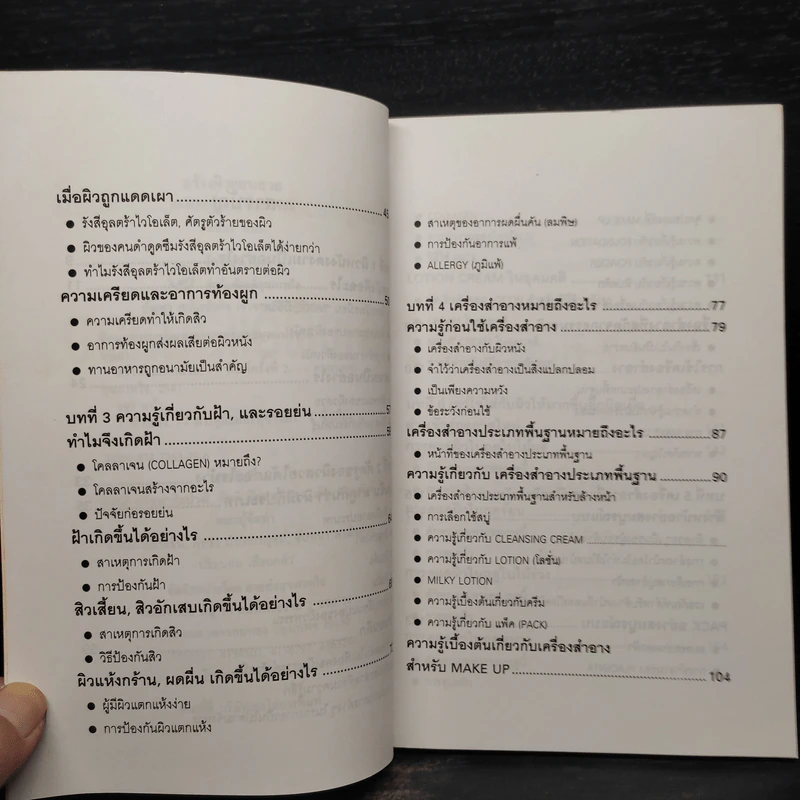 เมื่อผิวถูกแดดเผา
● รังสีอุลตร้าไวโอเล็ต, ศัตรูตัวร้ายของผิว
● ผิวของคนดำดูดซึมรังสีอุลตร้าไวโอเล็ตได้ง่ายกว่า
● ทำไมรังสีอุลตร้าไวโอเล็ตทำอันตรายต่อผิว
ความเครียดและอาการท้องผูก
● ความเครียดทำให้เกิดสิว
● อาการท้องผูกส่งผลเสียต่อผิวหนัง
● ทานอาหารถูกอนามัยเป็นสำคัญ
บทที่ 3 ความรู้เกี่ยวกับฝ้า, และรอยย่น
ทำไมจึงเกิดฝ้า
● โคลลาเจน (COLLAGEN) หมายถึง?
● โคลลาเจนสร้างจากอะไร
● ปัจจัยก่อรอยย่น
ฝ้าเกิดขึ้นได้อย่างไร
● สาเหตุการเกิดฝ้า
● การป้องกันฝ้า
สิวเสี้ยน, สิวอักเสบเกิดขึ้นได้อย่างไร
● สาเหตุการเกิดสิว
● วิธีป้องกันสิว
ผิวแห้งกร้าน, ผดผื่น เกิดขึ้นได้อย่างไร
● ผู้มีผิวแตกแห้งง่าย
● การป้องกันผิวแตกแห้ง
● สาเหตุของอาการผดผื่นคัน (ลมพิษ)
● การป้องกันอาการแพ้
● ALLERGY (ภูมิแพ้)
บทที่ 4 เครื่องสำอางหมายถึงอะไร 77
ความรู้ก่อนใช้เครื่องสำอาง 79
● เครื่องสำอางกับผิวหนัง
● จำไว้ว่าเครื่องสำอางเป็นสิ่งแปลกปลอม
● เป็นเพียงความหวัง
● ข้อระวังก่อนใช้
เครื่องสำอางประเภทพื้นฐานหมายถึงอะไร 87
● หน้าที่ของเครื่องสำอางประเภทพื้นฐาน
ความรู้เกี่ยวกับ เครื่องสำอางประเภทพื้นฐาน 90
● เครื่องสำอางประเภทพื้นฐานสำหรับล้างหน้า
● การเลือกใช้สบู่
● ความรู้เกี่ยวกับ CLEANSING CREAM
● ความรู้เกี่ยวกับ LOTION (โลชั่น)
● MILKY LOTION
● ความรู้เบื้องต้นเกี่ยวกับครีม
● ความรู้เกี่ยวกับ แพ็ค (PACK)
ความรู้เบื้องต้นเกี่ยวกับเครื่องสำอาง
สำหรับ MAKE UP 104